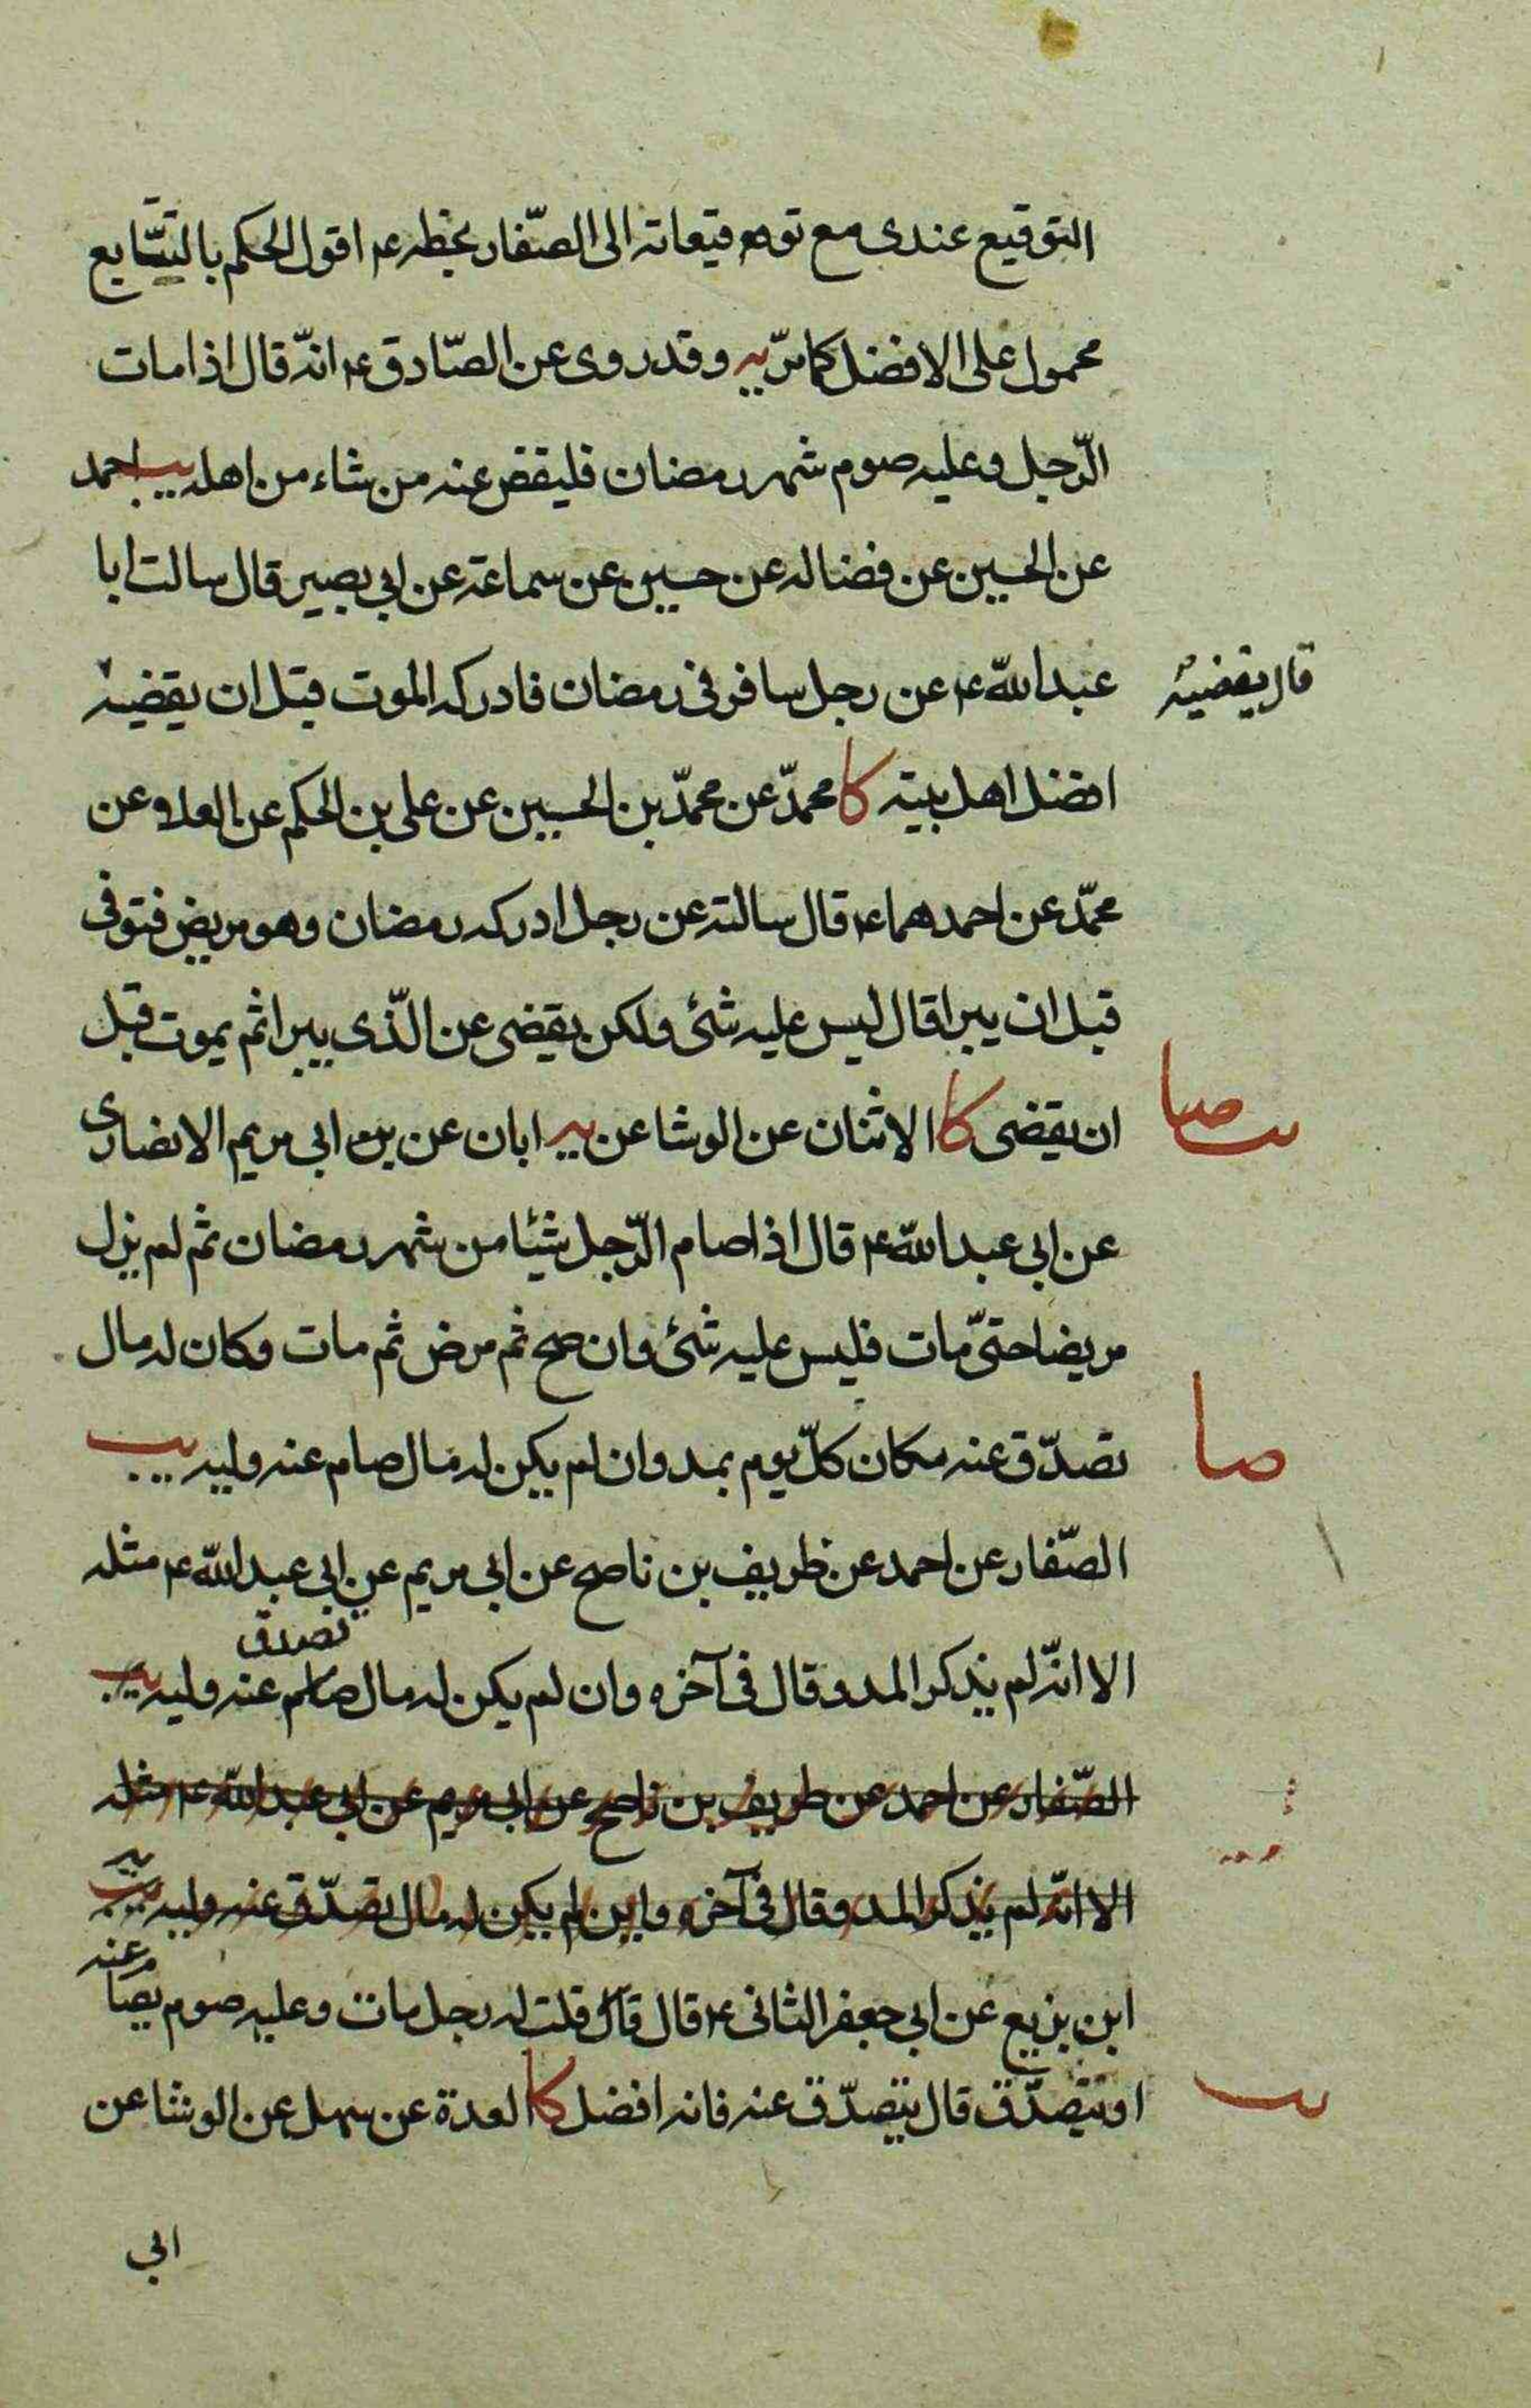 التوقيع عندى مع توقيعاته الى الصّفار بخطه ع اقول الحكم بالتتابع
محمول على الافضل كما مرّ يه وقد روى عن الصّادق ع انّه قال اذا مات
الرّجل وعليه صوم شهر رمضان فليقض عنه من شاء من اهله يب احمد
عن الحسين عن فضاله عن حسين عن سماعة عن ابي بصير قال سالت ابا
عبد اللّه ع عن رجل سافر فى رمضان فادركه الموت قبل ان يقضيه
قال يقضيه
افضل اهل بيته كا محمدّ عن محمدّ بن الحسين عن على بن الحكم عن العلاء عن
محمّد عن احدهما ع قال سالته عن رجل ادركه رمضان وهو مريض فتوفى
قبل ان يبرا قال ليس عليه شئ ولكن يقضى عن الّذى يبرا ثم يموت قبل
ان يقضى كا الاثنان عن الوشا عن يه ابان عن ابى مريم الانصارى
يب صا
عن ابى عبد اللّه ع قال اذا صام الرّجل شيئا من شهر رمضان ثم لم يزل
مريضا حتىّ مات فليس عليه شئ وان صح ثم مرض ثم مات وكان له مال
تصدّق عنه مكان كلّ يوم بمد وان لم يكن له مال صام عنه وليه يب
صا
الصّفار عن احمد عن ظريف بن ناصح عن ابى مريم عن ابى عبد اللّه ع مثله
تصدق
الا انّه لم يذكر المد وقال فى آخره وان لم يكن له مال صام عنه وليه يب
الصّفار عن احمد عن ظريف بن ناصح عن ابى مريم عن ابى عبد اللّه ع مثله
الا انّه لم يذكر المد وقال فى آخره وان لم يكن له مال تصدّق عنه وليه يه
عنه
ابن بزيع عن ابى جعفر الثانى ع قال قال قلت له رجل مات وعليه صوم يصام
او يتصدّق قال يتصدّق عنه فانه افضل كا العدة عن سهل عن الوشا عن
يب
ابي